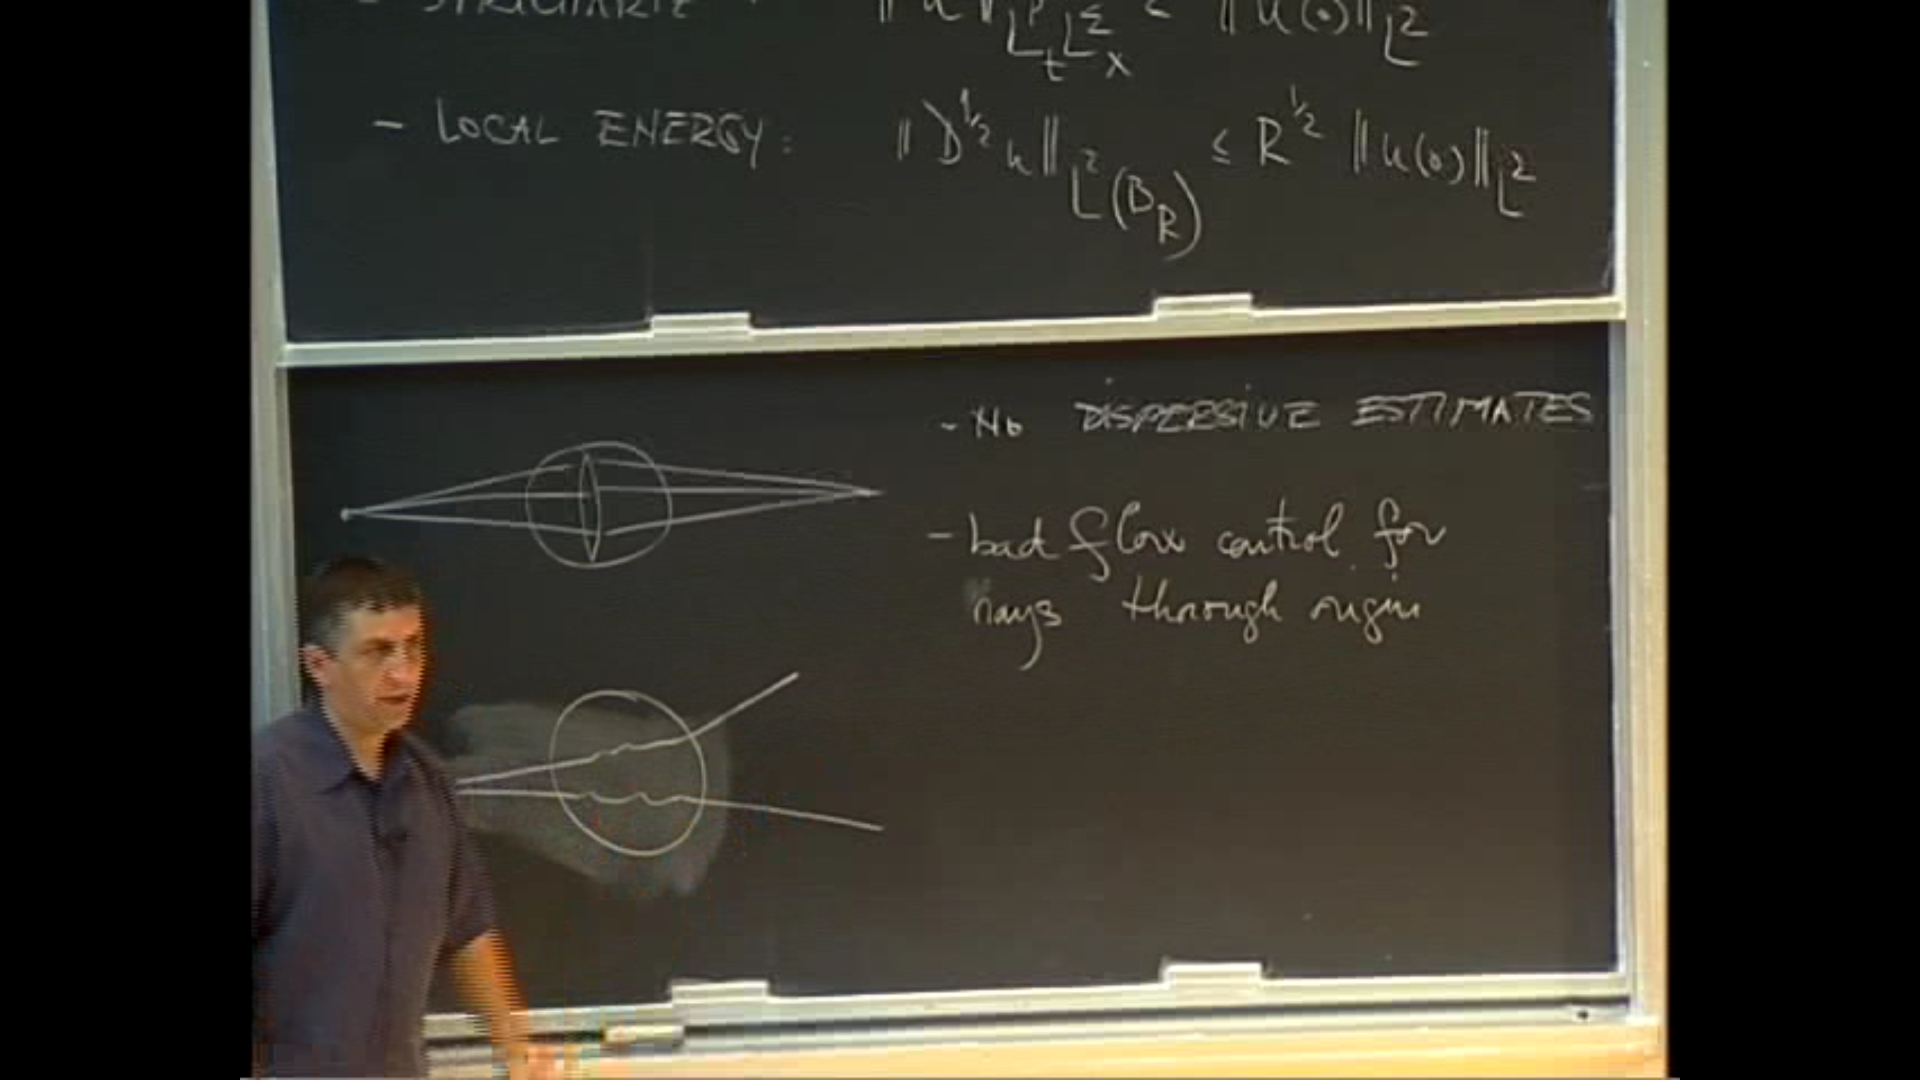 - STRICHARTZ : ‖u‖_{L^p_t L^q_x} ≤ ‖u(0)‖_{L^2}
- LOCAL ENERGY: ‖D^{1/2} u‖_{L^2(B_R)} ≤ R^{1/2} ‖u(0)‖_{L^2}
- No DISPERSIVE ESTIMATES
- bad flow control for
rays through origin